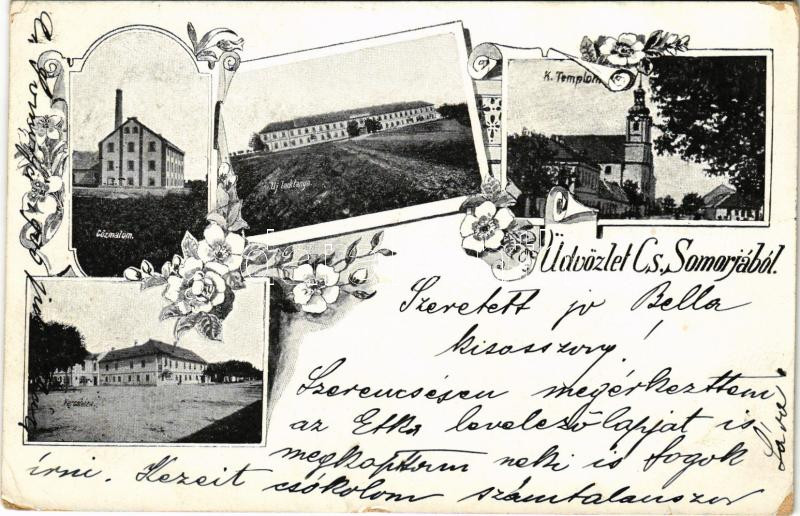 K. Templom.
Uj laktanya.
Gőzmalom.
Üdvözlet Cs. Somorjából.
Szeretett jo Bella
kisasszony!
Szerencsésen megérkeztem
az Etka levelezőlapját is
megkaptam neki is fogok
írni. Kezeit csókolom számtalanszor
Sára